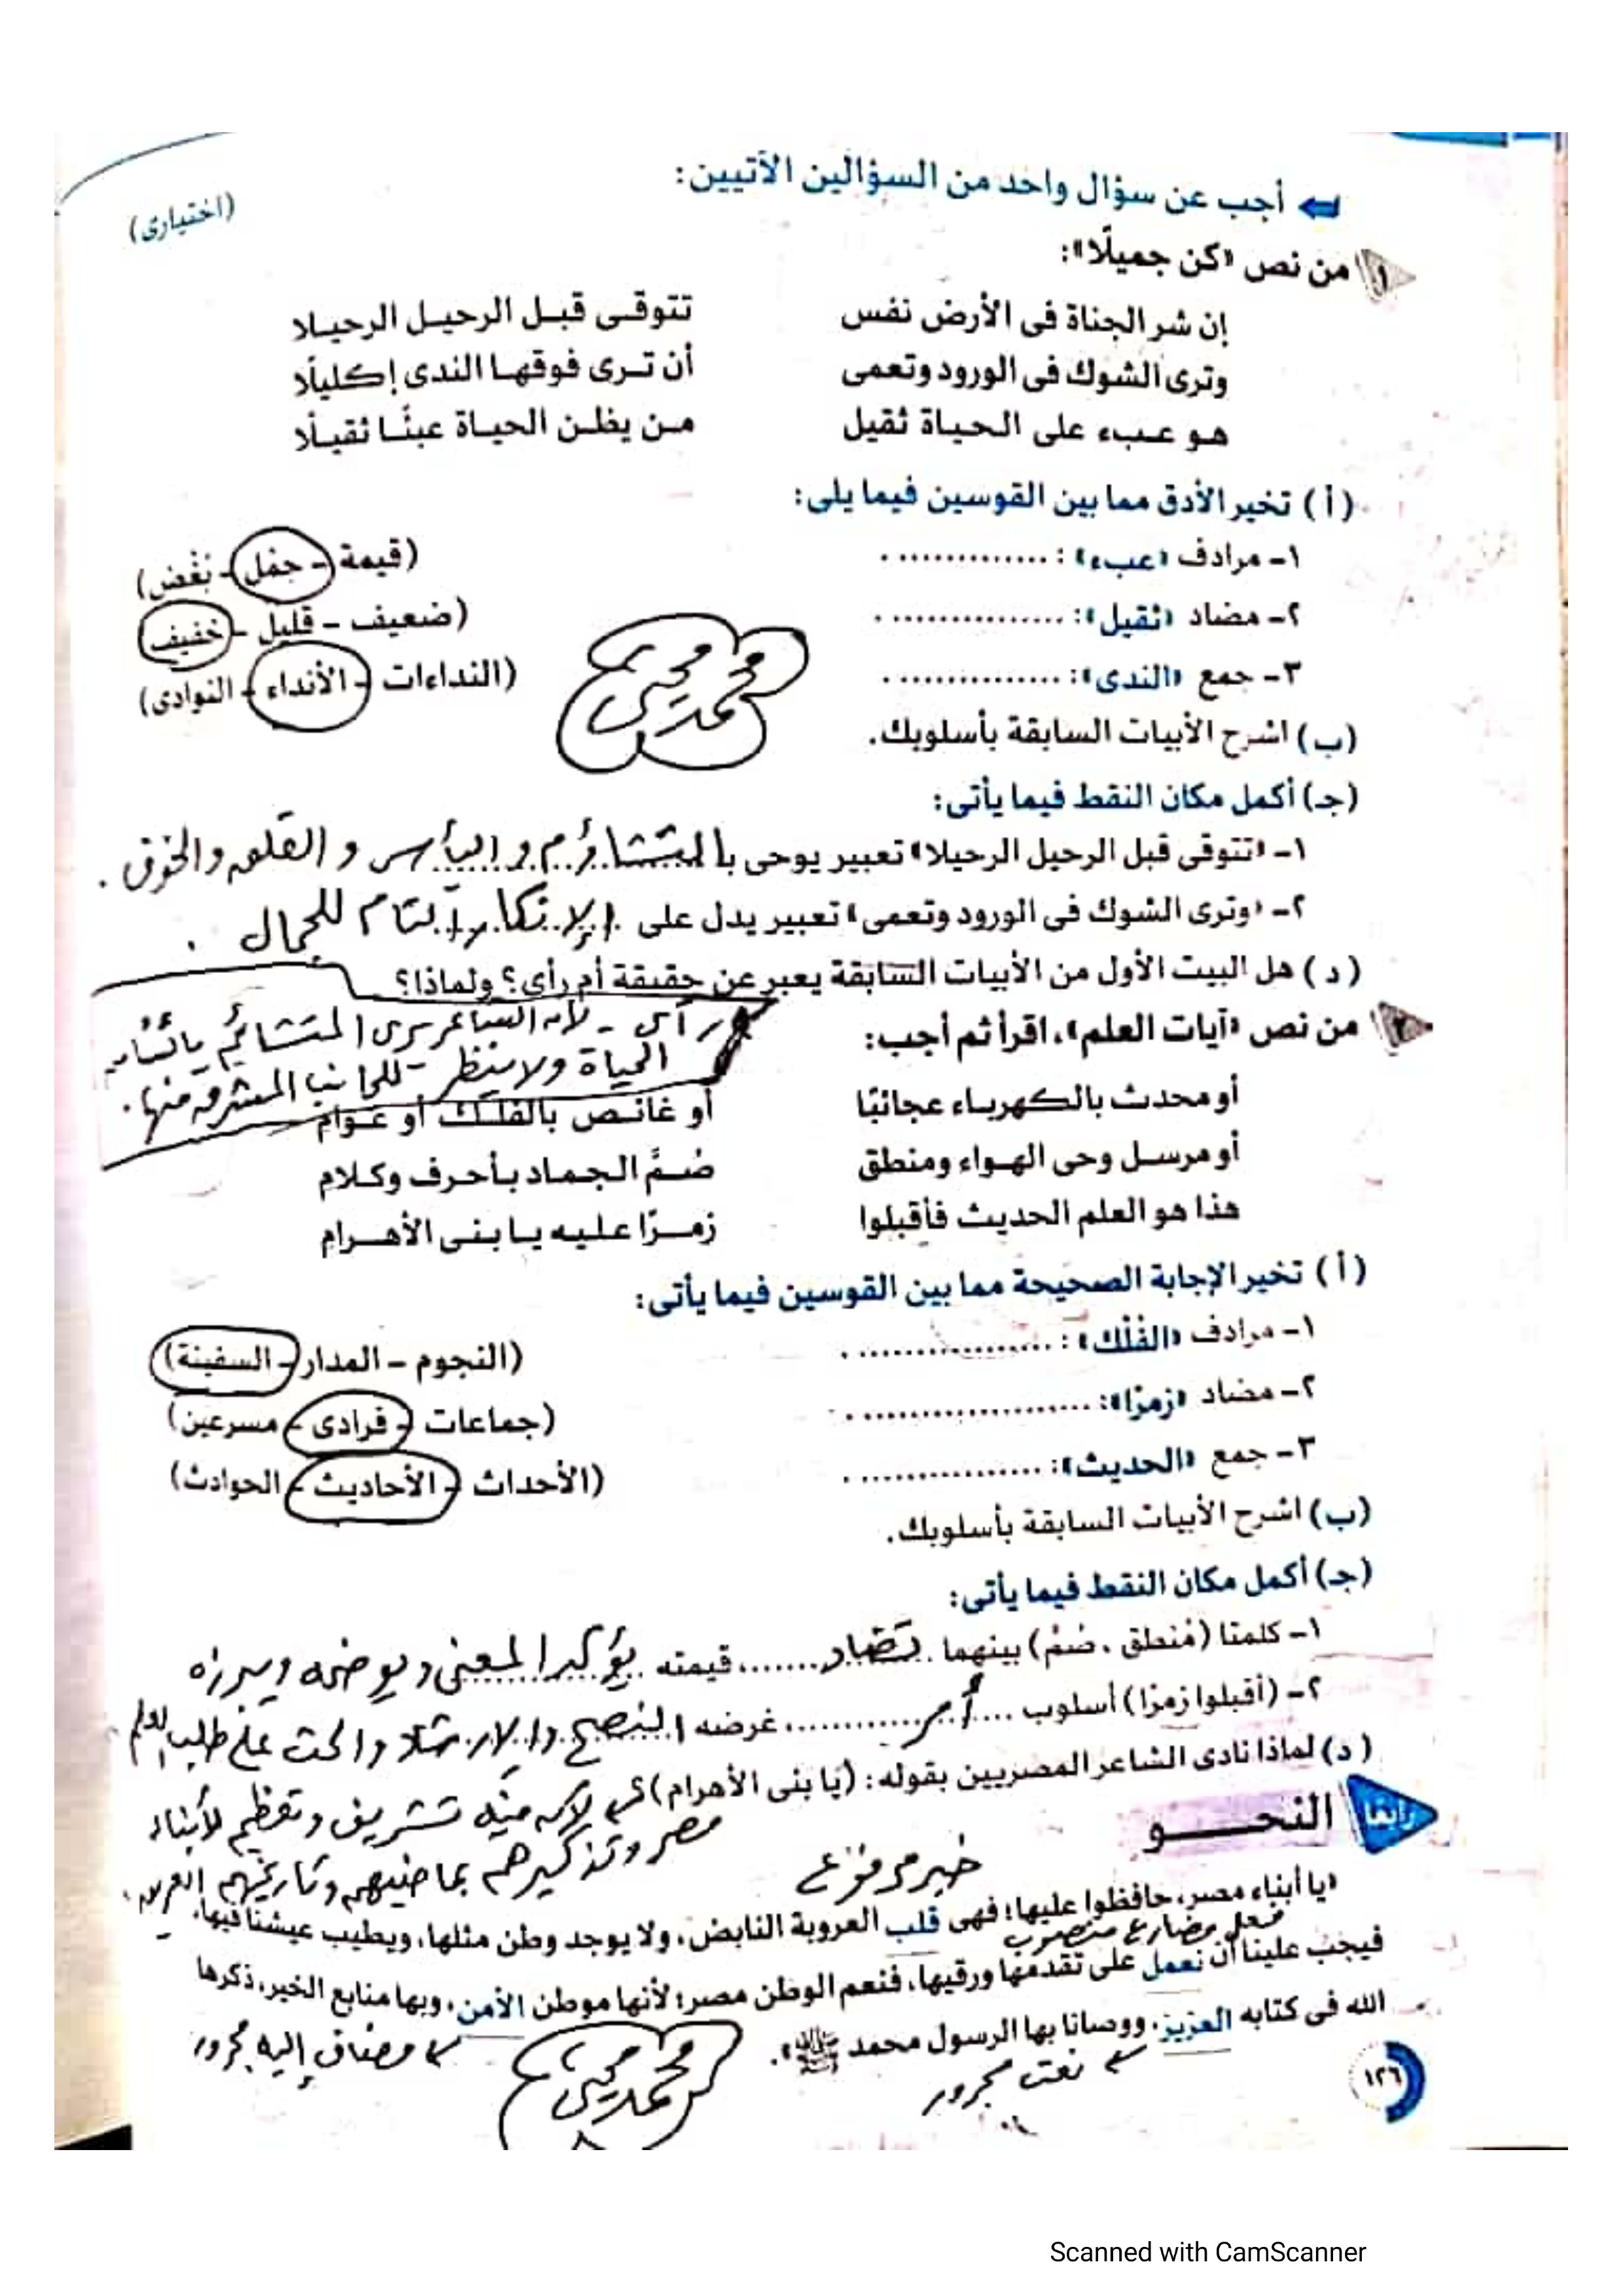 أجب عن سؤال واحد من السؤالين الآتيين: (اختيارى)
١ من نص «كن جميلًا»:
إن شر الجناة فى الأرض نفس تتوقى قبل الرحيل الرحيلا
وترى الشوك فى الورود وتعمى أن ترى فوقها الندى إكليلًا
هو عبء على الحياة ثقيل من يظن الحياة عبئًا ثقيلًا
(أ) تخير الأدق مما بين القوسين فيما يلى:
١- مرادف «عبء»: .............. (قيمة - حمل - بغض)
٢- مضاد «ثقيل»: .............. (ضعيف - قليل - خفيف)
٣- جمع «الندى»: .............. (النداءات - الأنداء - النوادى)
محمد محيى
(ب) اشرح الأبيات السابقة بأسلوبك.
(جـ) أكمل مكان النقط فيما يأتى:
١- «تتوقى قبل الرحيل الرحيلا» تعبير يوحى بالتشاؤم واليأس والقلق والخوف.
٢- «وترى الشوك فى الورود وتعمى» تعبير يدل على الإنكار التام للجمال.
(د) هل البيت الأول من الأبيات السابقة يعبر عن حقيقة أم رأى؟ ولماذا؟
رأى - لأن الشاعر يرى المتشائم يائسًا من
الحياة ولا ينظر للجانب المشرق منها.
٢ من نص «آيات العلم»، اقرأ ثم أجب:
أو محدث بالكهرباء عجائبًا أو غائص بالفلك أو عوام
أو مرسل وحى الهواء ومنطق صُمَّ الجماد بأحرف وكلام
هذا هو العلم الحديث فأقبلوا زمرًا عليه يا بنى الأهرام
(أ) تخير الإجابة الصحيحة مما بين القوسين فيما يأتى:
١- مرادف «الفُلْك»: .............. (النجوم - المدار - السفينة)
٢- مضاد «زمرًا»: .............. (جماعات - فرادى - مسرعين)
٣- جمع «الحديث»: .............. (الأحداث - الأحاديث - الحوادث)
(ب) اشرح الأبيات السابقة بأسلوبك.
(جـ) أكمل مكان النقط فيما يأتى:
١- كلمتا (مُنطق، صُمّ) بينهما تضاد، قيمته يؤكد المعنى ويوضحه ويبرزه
٢- (أقبلوا زمرًا) أسلوب أمر، غرضه النصح والإرشاد والحث على طلب العلم
(د) لماذا نادى الشاعر المصريين بقوله: (يا بنى الأهرام)؟ لأن فيه تشريف وتعظيم لأبناء
مصر وتذكيرهم بماضيهم وتاريخهم العريق.
رابعًا النحـــو
خبر مرفوع
«يا أبناء مصر، حافظوا عليها؛ فهى قلب العروبة النابض، ولا يوجد وطن مثلها، ويطيب عيشنا فيها،
فعل مضارع منصوب
فيجب علينا أن نعمل على تقدمها ورقيها، فنعم الوطن مصر؛ لأنها موطن الأمن، وبها منابع الخير، ذكرها
الله فى كتابه العزيز، ووصانا بها الرسول محمد ﷺ».
مضاف إليه مجرور
نعت مجرور
محمد محيى
١٢٦
Scanned with CamScanner